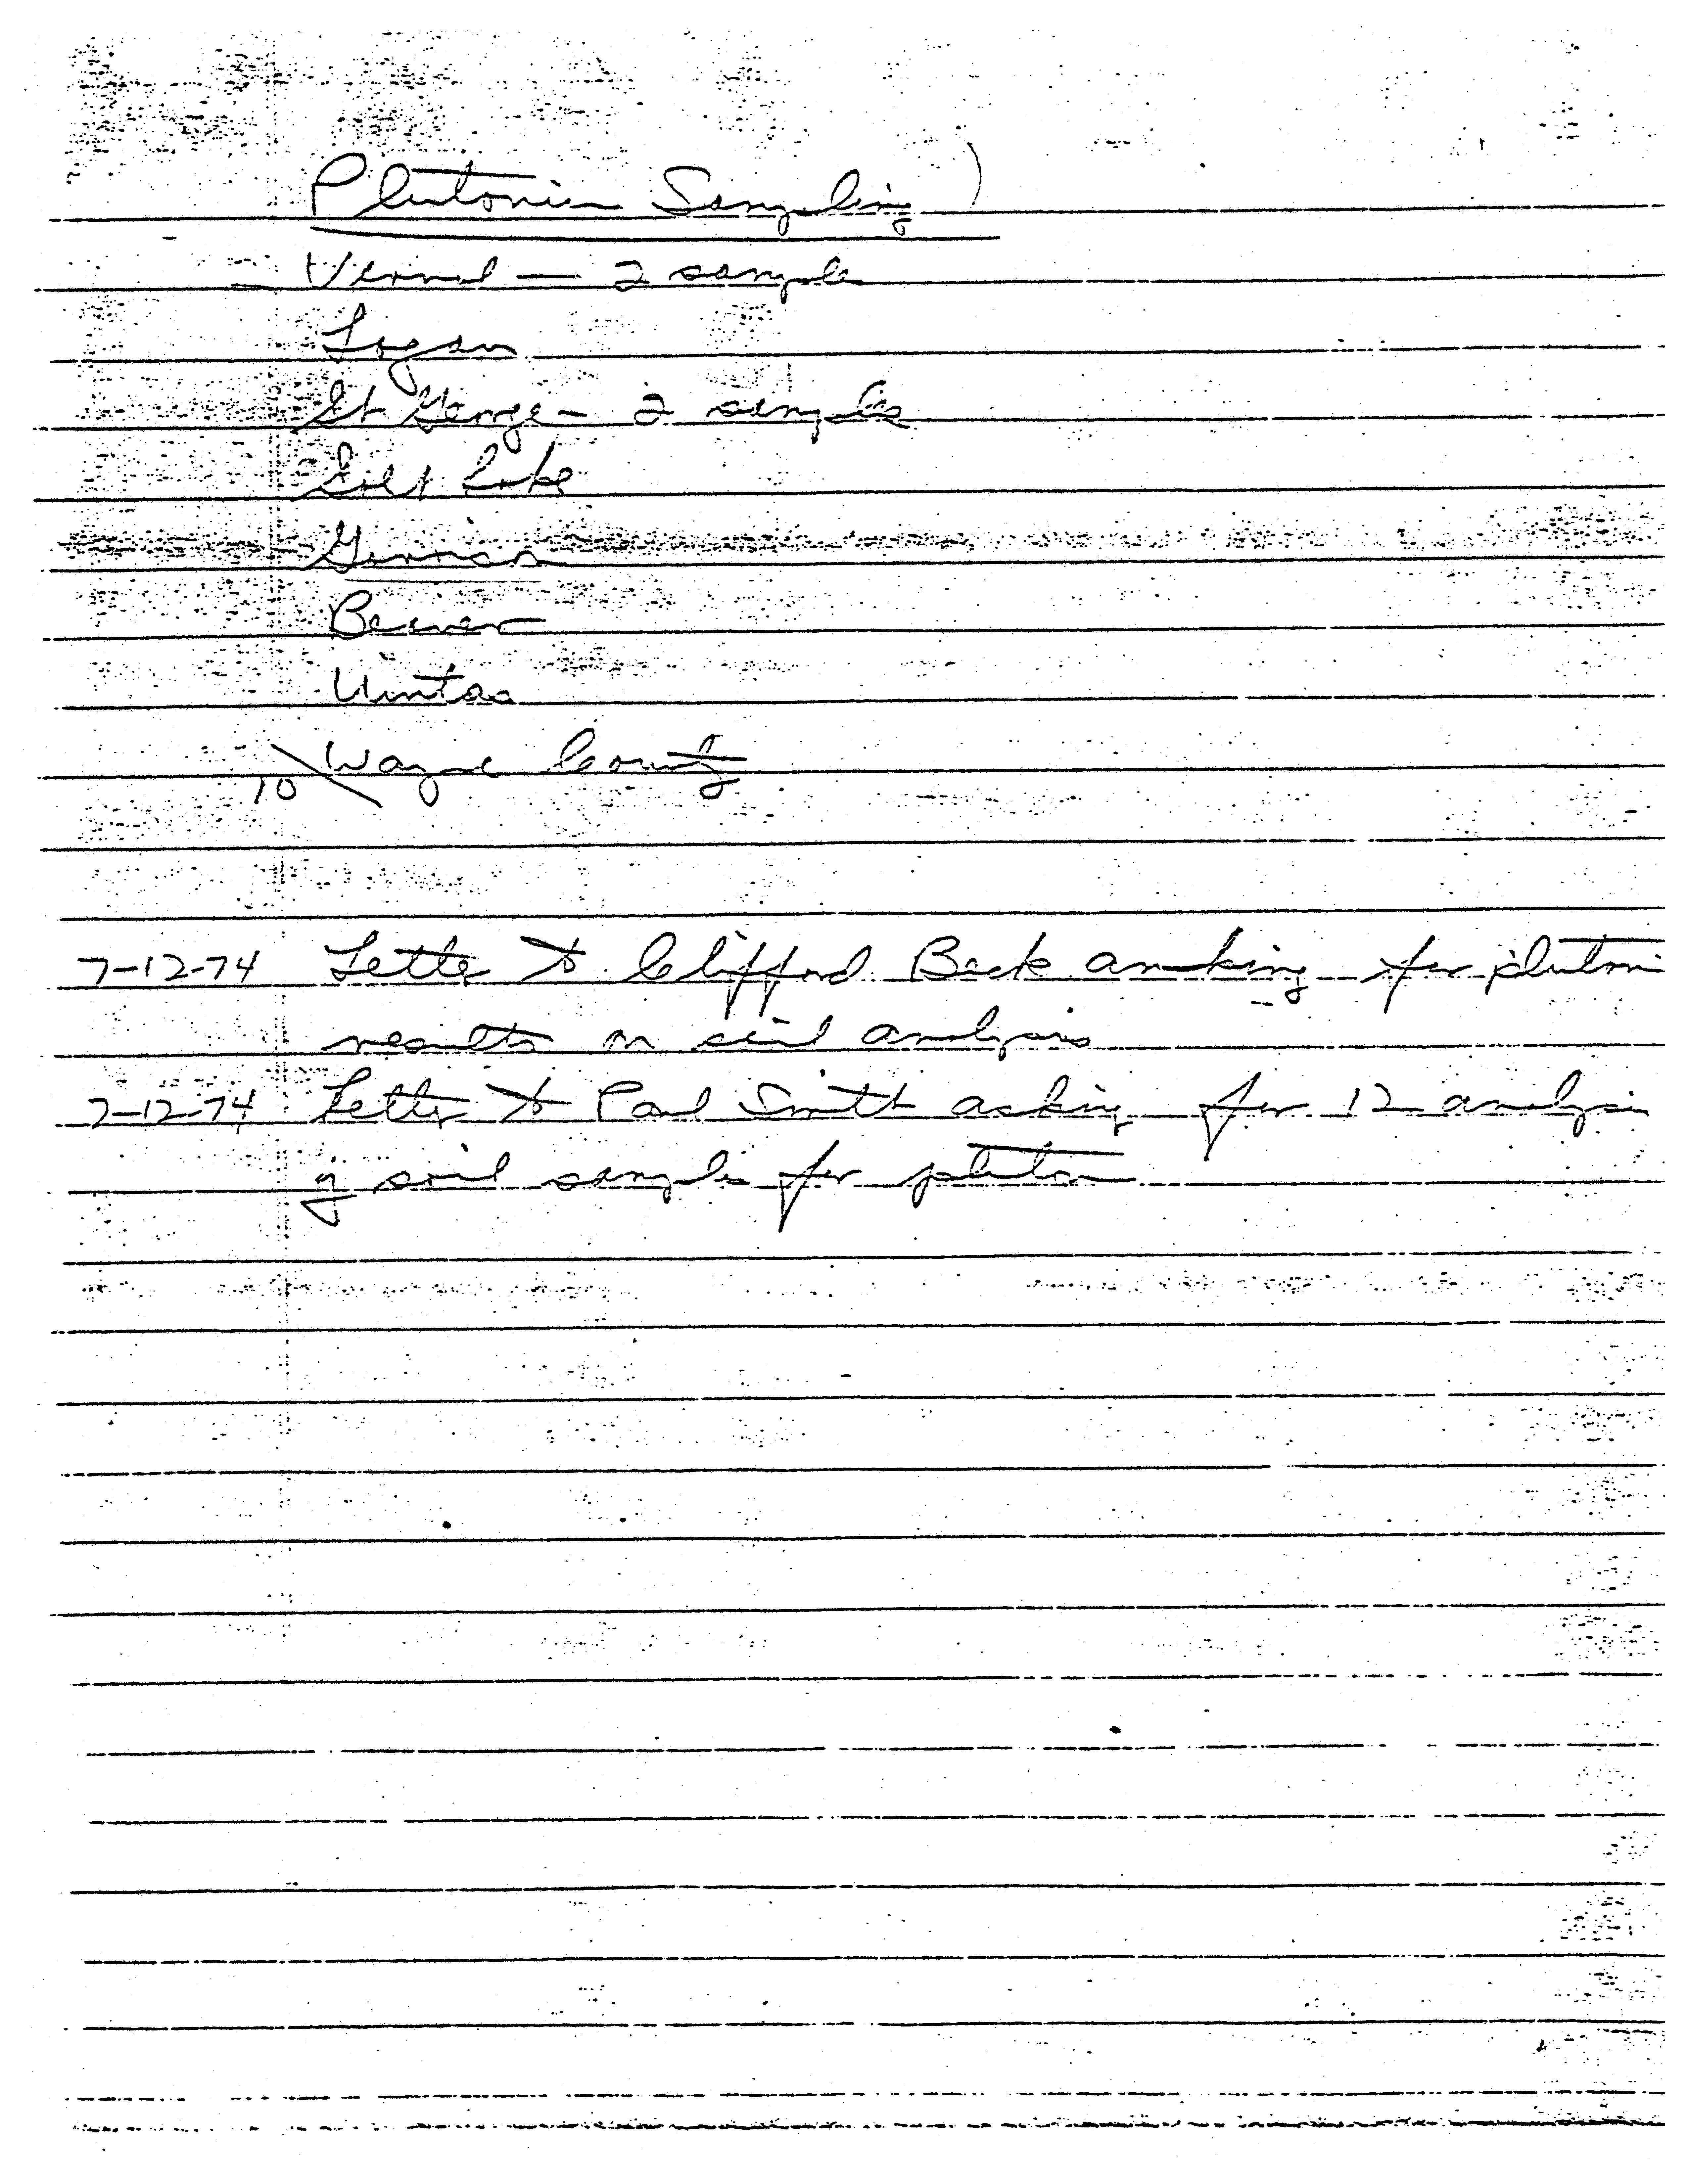 Plutonium Sampling
Vernal — 2 sample
Logan
St George - 2 samples
Salt Lake
Beaver
Uintas
10 Wayne County
7-12-74 Letter to Clifford Beck asking for pluton
results on soil analysis
7-12-74 Letter to Paul Smith asking for 12 analysis
of soil samples for pluton